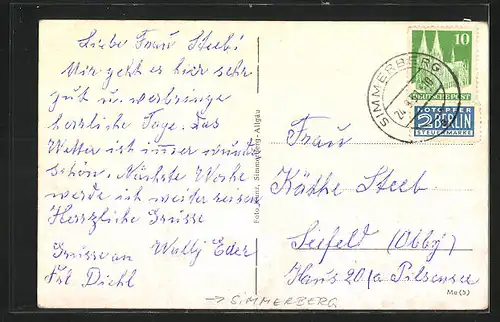 Liebe Frau Steeb!
Mir geht es hier sehr
gut u. verbringe
herrliche Tage. Das
Wetter ist immer wunder
schön. Nächste Woche
werde ich weiter reisen
Herzliche Grüsse
Grüsse an Wally Eder
Frl Diehl
Simmerberg-Allgäu
10
DEUTSCHE POST
NOTOPFER
2 BERLIN
STEUERMARKE
SIMMERBERG
24.9.
Frau
Käthe Steeb
Seefeld (Obby)
Haus 20/a Pilsensee
Mo(5)
→ SIMMERBERG